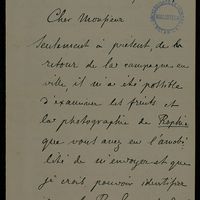 Cher Monsieur
Seulement à présent, de la
retour de la campagne en
ville, il m'a été possible
d'examiner les fruits et
la photographie de Raphia
que vous avez eu l'amabi-
lité de m'envoyer et que
je crois pouvoir identifier